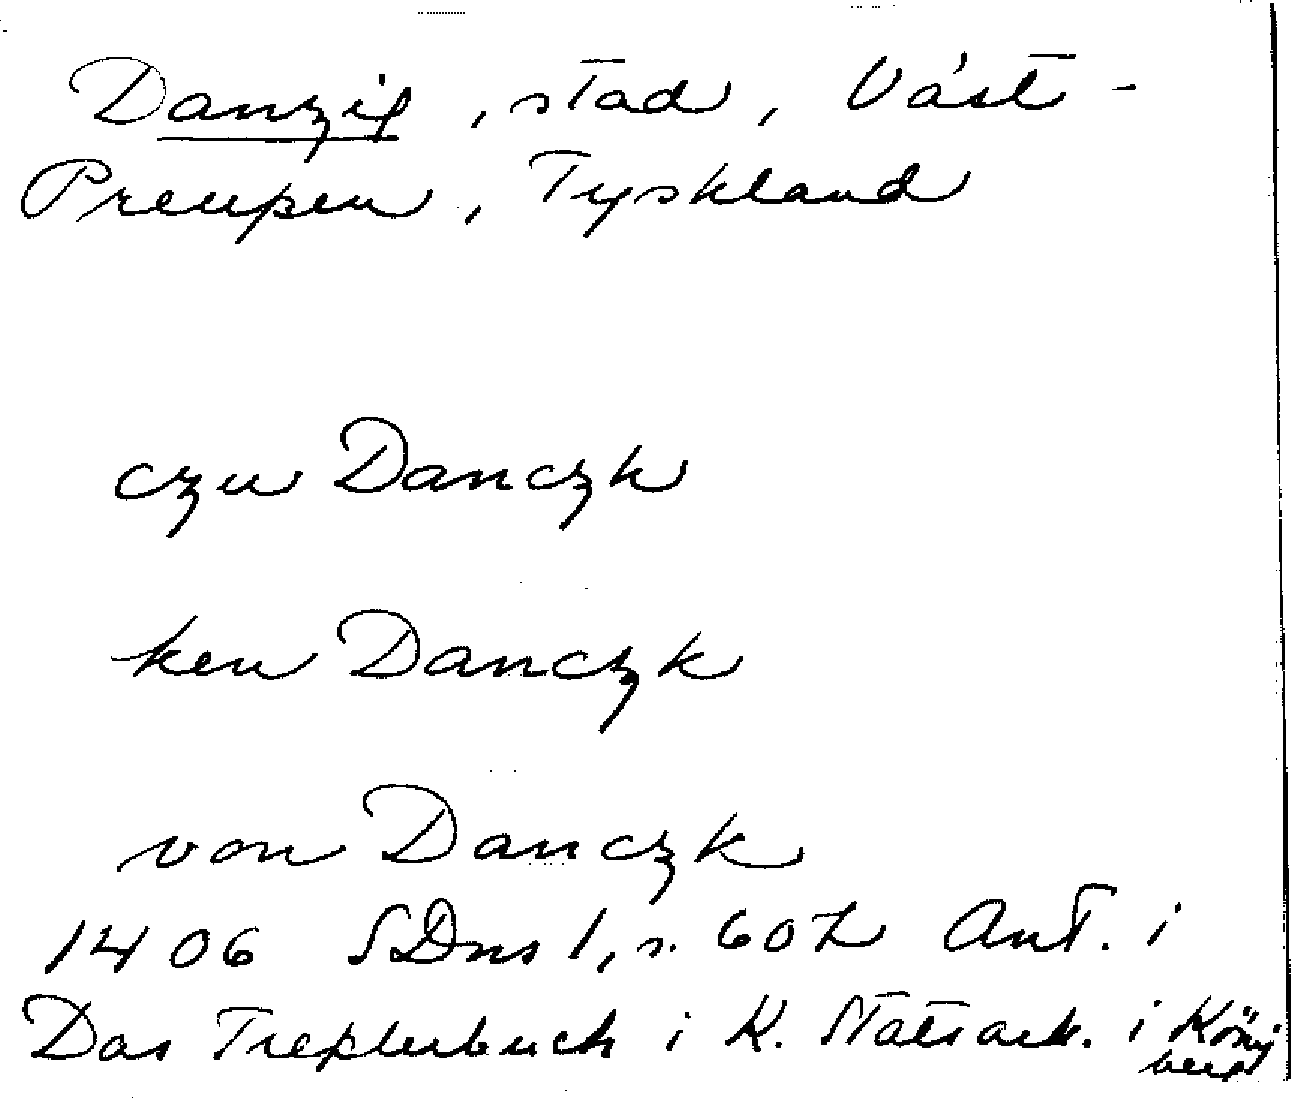 Danzig, stad, Väst-
Preussen, Tyskland
czu Danczk
ken Danczk
von Danczk
1406 SDns 1, s. 602 Ant. i
Das Tresslerbuch i K. Statsark. i König
berg